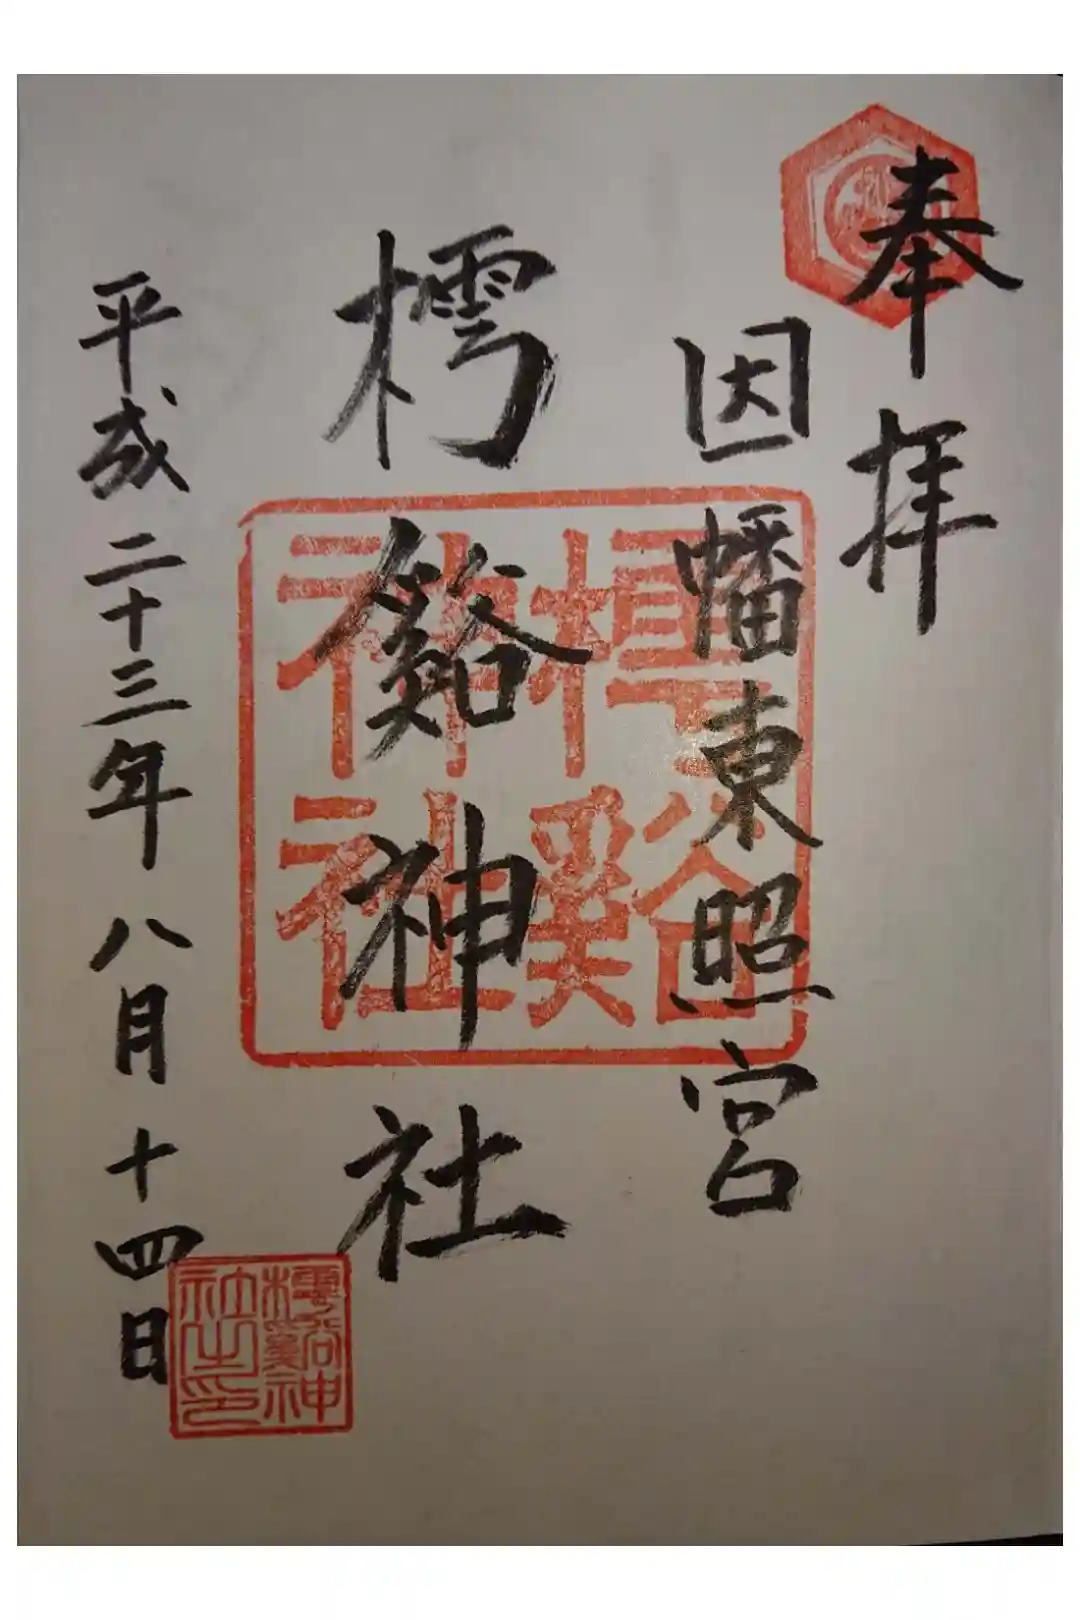 奉拝
因幡東照宮
樗谿神社
平成二十三年八月十四日
樗谿神社
樗谿神社之印